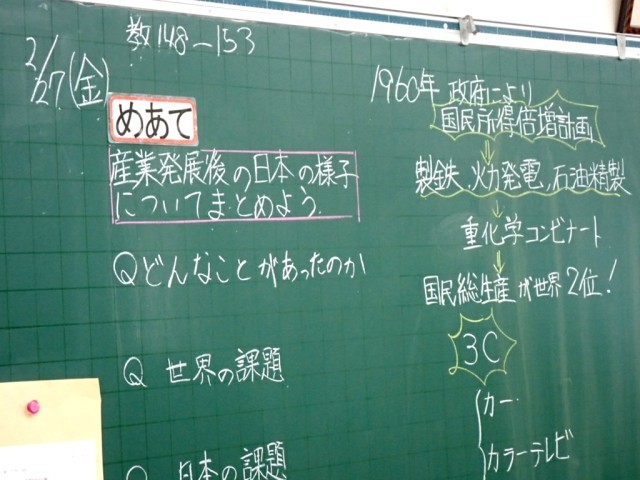 教148-153
2/27(金)
めあて
産業発展後の日本の様子
についてまとめよう
Qどんなことがあったのか
Q 世界の課題
Q 日本の課題
1960年 政府により
国民所得倍増計画
製鉄、火力発電、石油精製
重化学コンビナート
国民総生産が世界2位!
3C
カー
カラーテレビ